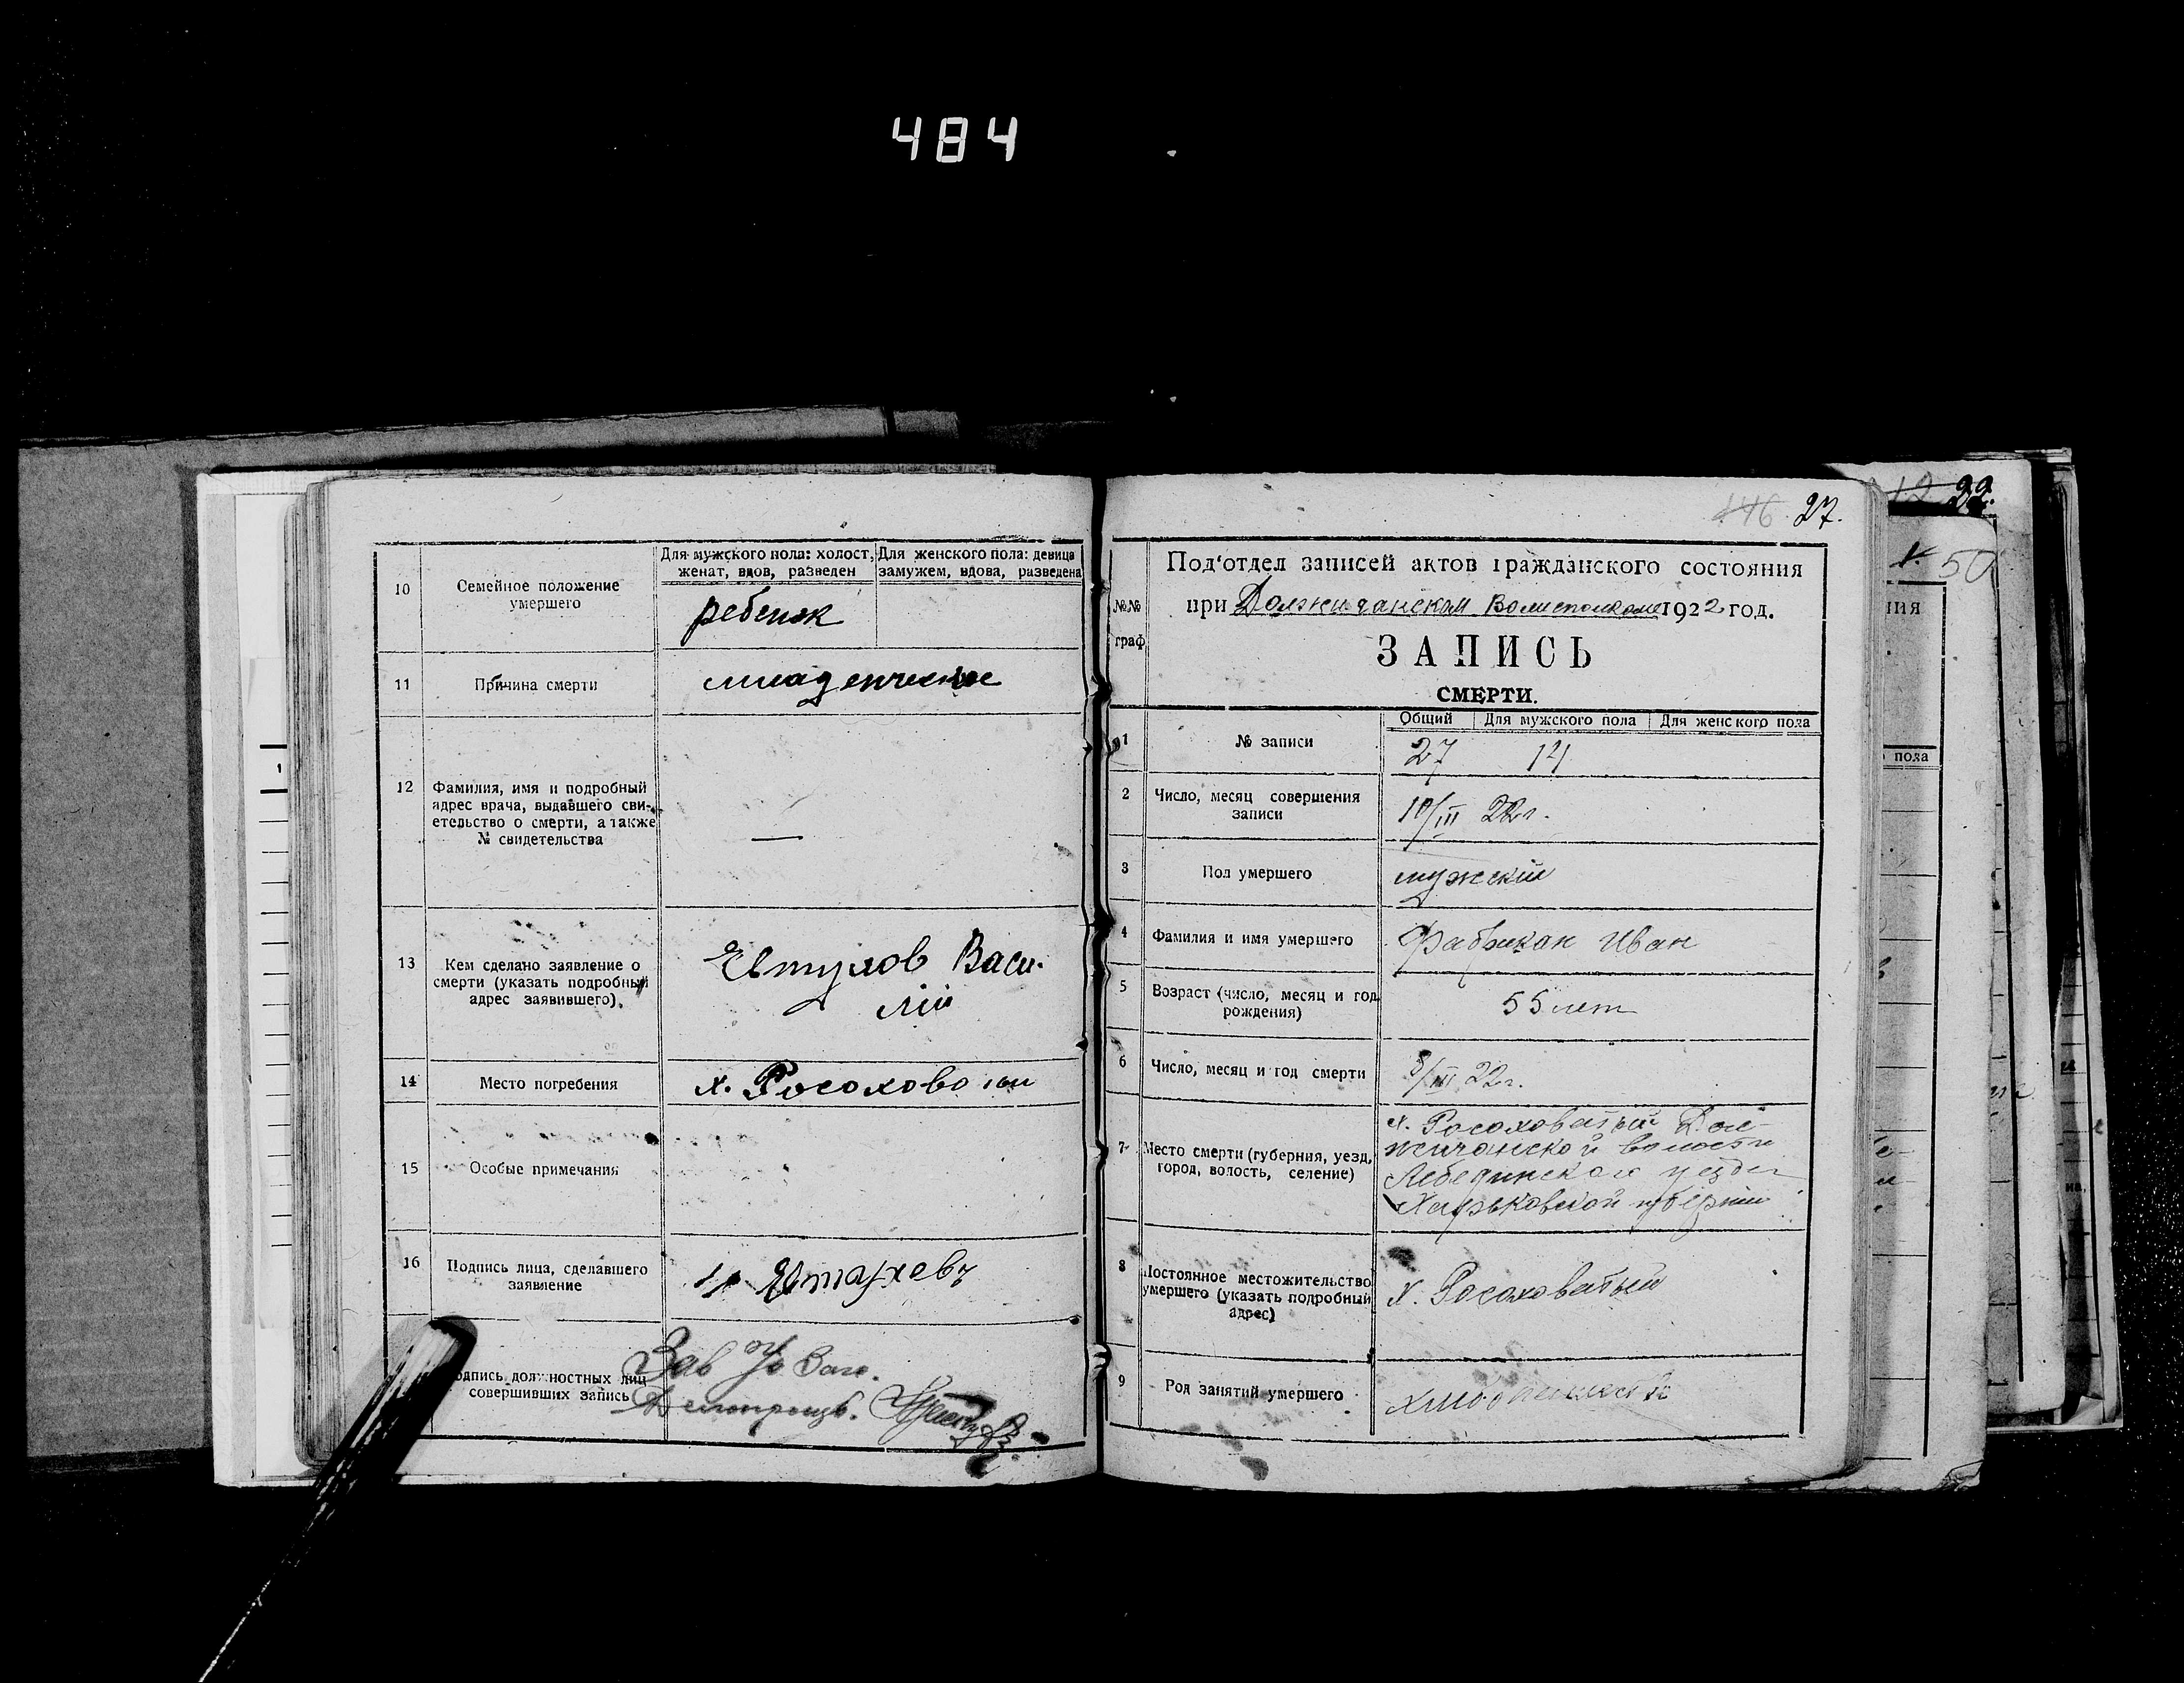 484
10
Семейное положение
умершего
Для мужского пола: холост,
женат, вдов, разведен
Для женского пола: девица
замужем, вдова, разведена
ребенок
11
Причина смерти
младенческое
12
Фамилия, имя и подробный
адрес врача, выдавшего сви-
етельство о смерти, а также
№ свидетельства
—
13
Кем сделано заявление о
смерти (указать подробный
адрес заявившего).
Васи-
лій
14
Место погребения
х. Росохова
15
Особые примечания
16
Подпись лица, сделавшего
заявление
одпись должностных лиц
совершивших запись
Зав
146 27.
№№
граф
Под'отдел записей актов гражданского состояния
при Должичанском Волисполкоме 1922 год.
ЗАПИСЬ
СМЕРТИ.
Общий Для мужского пола Для женского пола
1 № записи 27 14
2 Число, месяц совершения
записи
10/III 22 г.
3 Пол умершего мужскій
4 Фамилия и имя умершего Фабрикан Иван
5 Возраст (число, месяц и год
рождения)
55 лет
6 Число, месяц и год смерти 8/III 22 г.
7 Место смерти (губерния, уезд,
город, волость, селение)
х. Росоховатый Дол-
жичанской волости
Лебединского уезда
Харьковской губернии
8 Постоянное местожительство
умершего (указать подробный
адрес)
х. Росоховатый
9 Род занятий умершего
12 22.
50
ния
пола